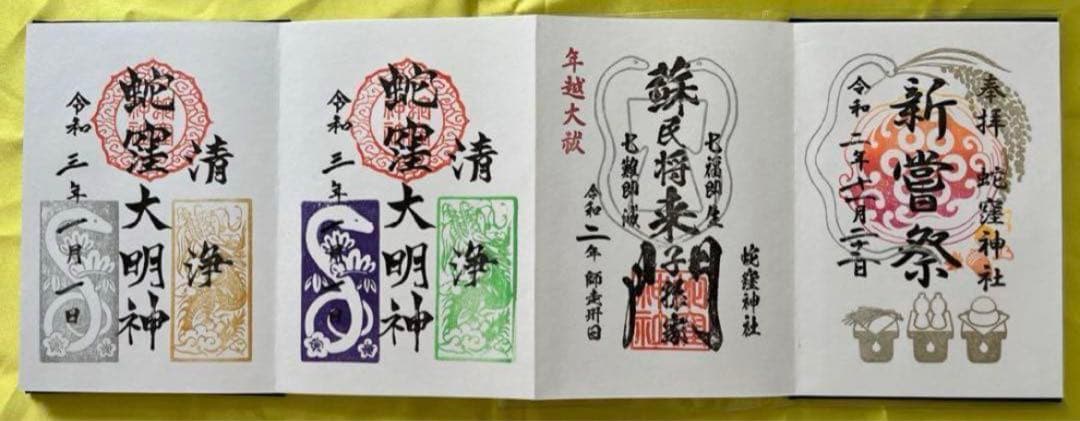 奉拝 蛇窪神社
新嘗祭
令和二年十一月二十三日
蛇窪神社
七福即生
蘇民将来子孫家門
七難即滅
令和二年 師走卅日
年越大祓
清浄
蛇窪大明神
令和三年一月一日
清浄
蛇窪大明神
令和三年一月一日